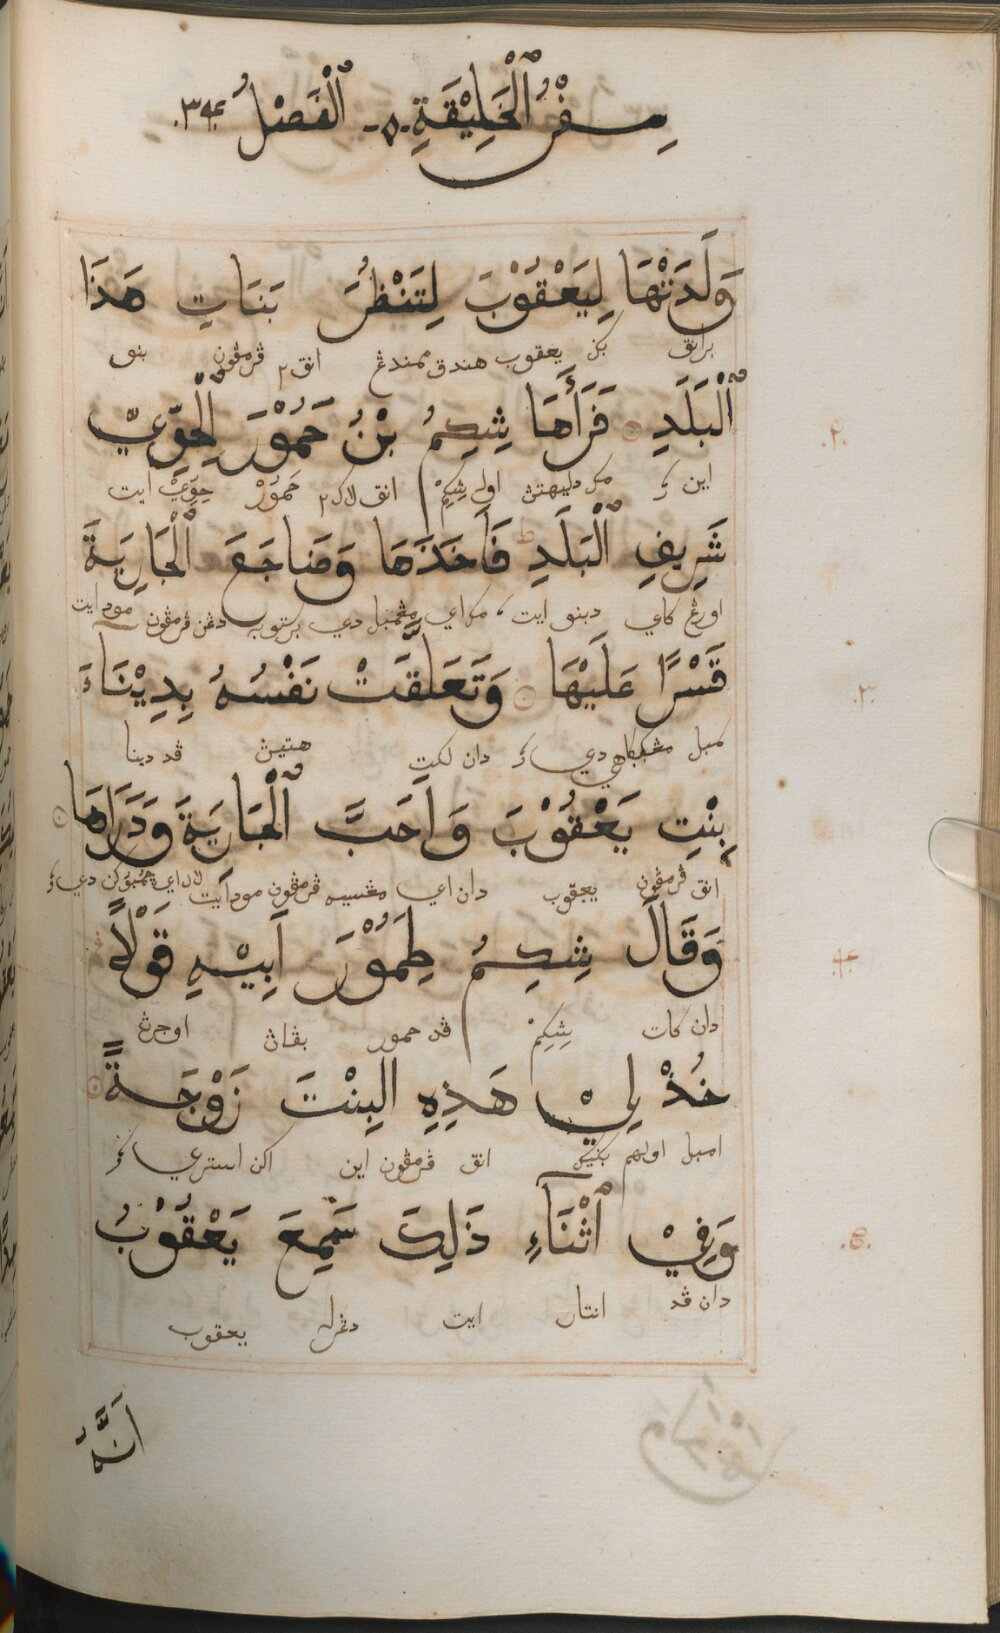 سِفْرُ ٱلْخَلِيْقَةِ ٥٠ ٱلْفَصْلُ ٣٤
وَلَدَتْهَا لِيَعْقُوْبَ لِتَنْظُرَ بَنَاتِ هَذَا
برانق بݢي يعقوب هندق ممندڠ انق٢ ڤرمڤون بنو
ٱلْبَلَدِ فَرَأَهَا شِكِمُ بْنُ حَمُوْرَ ٱلْحِوِّيِّ
٢
این مك دليهتڽ اوله شِكِمْ انق لاك٢ حَمُوْرْ حِوِّيْ ايت
شَرِيفِ ٱلْبَلَدِ فَاَخَذَهَا وَضَاجَعَ ٱلْجَارِيَةَ
اورڠ كاي دبنو ايت مك اي مڠمبل دي برتوبه دڠن ڤرمڤون مودايت
قَسْرًا عَلَيْهَا وَتَعَلَّقَتْ نَفْسُهُ بِدِيْنَاءَ
٣
دان لكت هتيڽ ڤد دينا
بِنْتِ يَعْقُوْبَ وَاَحَبَّ ٱلْجَارِيَةَ وَدَرَاهَا
انق ڤرمڤون يعقوب دان اي مڠسيه ڤرمڤون مودايت
وَقَالَ شِكِمُ لِحَمُوْرَ اَبِيْهِ قَوْلاً
٤
دان كات شِكِمْ ڤد حمور بڤاڽ اوجرڽ
خُذْ لِيْ هَذِهِ البِنْتَ زَوْجَةً
امبل اولهم بݢيك انق ڤرمڤون اين اكن استري
وَفِيْ اَثْنَآءِ ذَلِكَ سَمِعَ يَعْقُوْبُ
٥
دان ڤد انتار ايت دڠرله يعقوب
اَنَّهُ